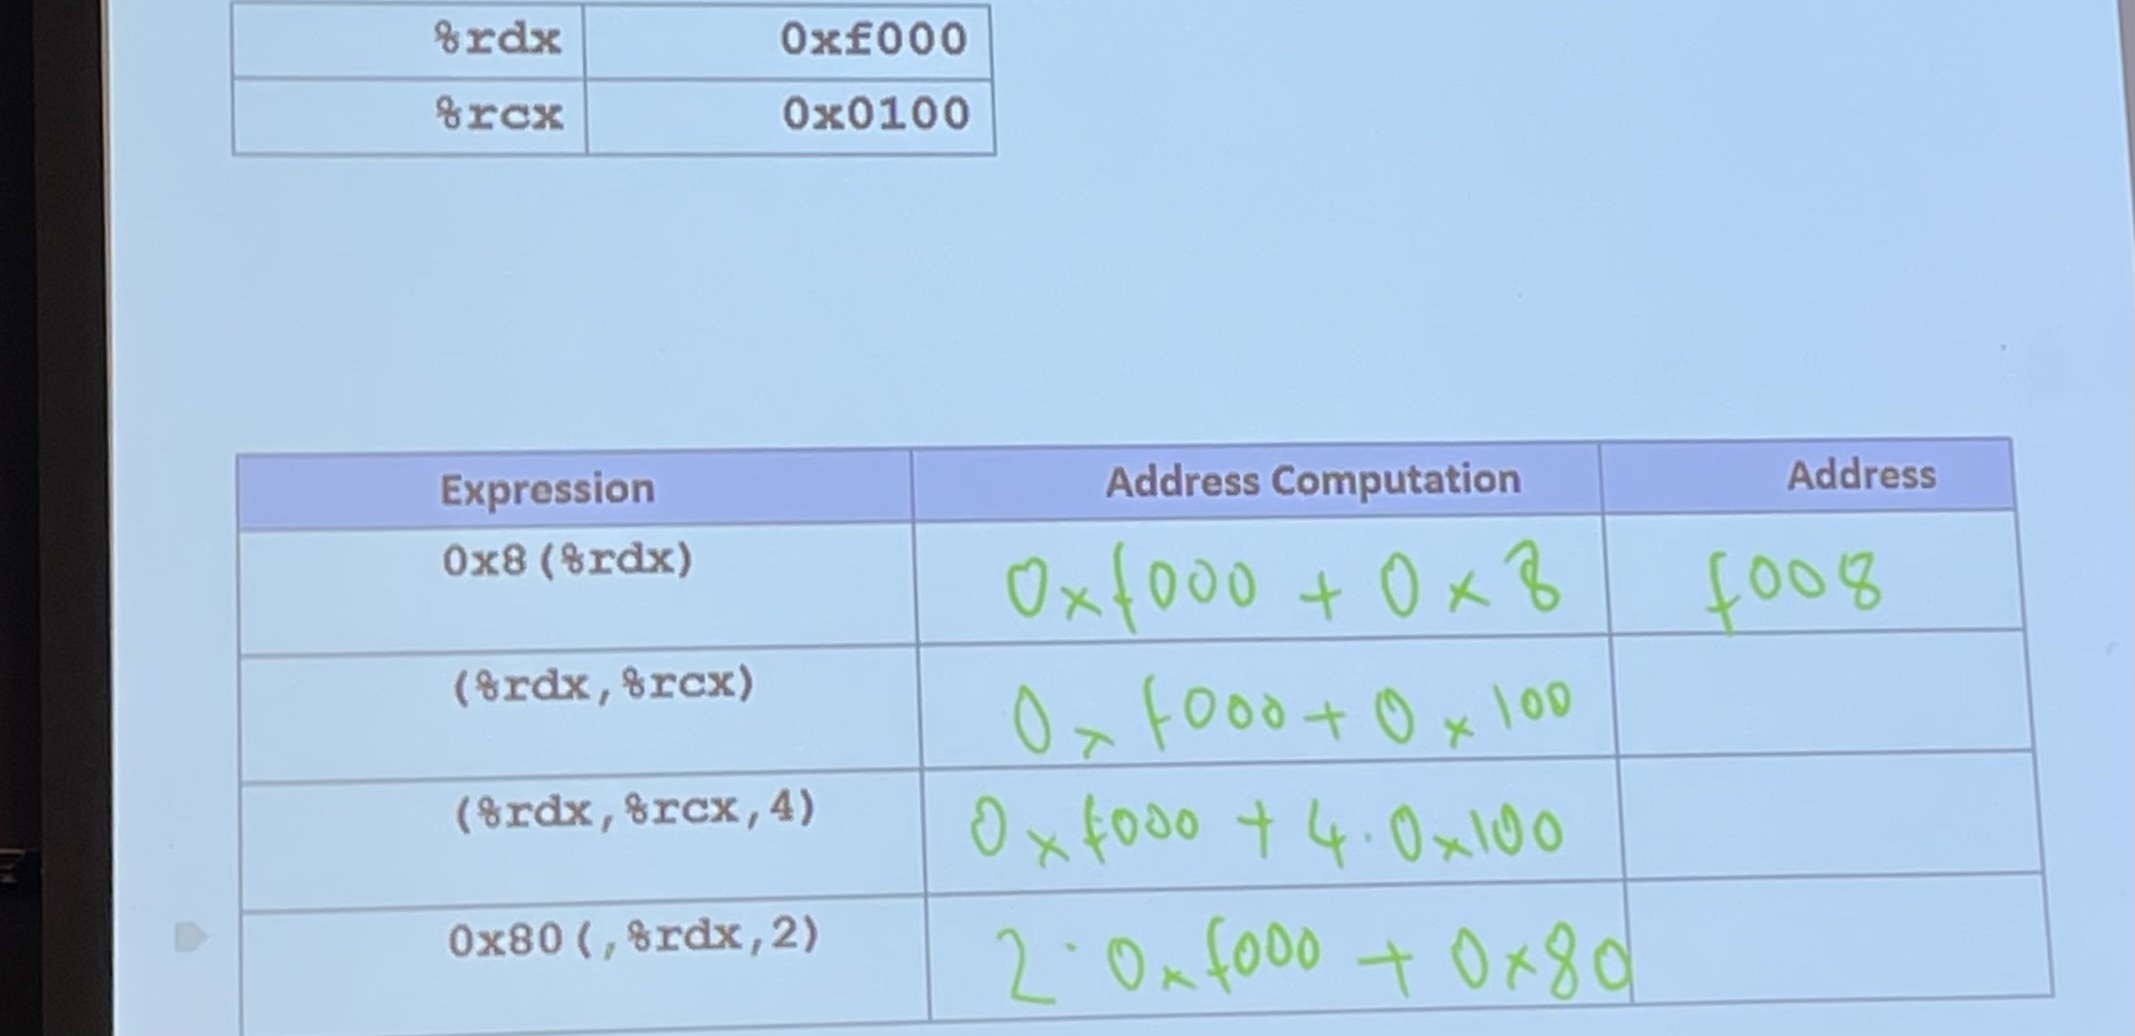 %rdx 0xf000
%rcx 0x0100
Expression Address Computation Address
0x8(%rdx) 0xf000 + 0x8 f008
(%rdx,%rcx) 0xf000 + 0x100
(%rdx,%rcx,4) 0xf000 + 4·0x100
0x80(,%rdx,2) 2·0xf000 + 0x80